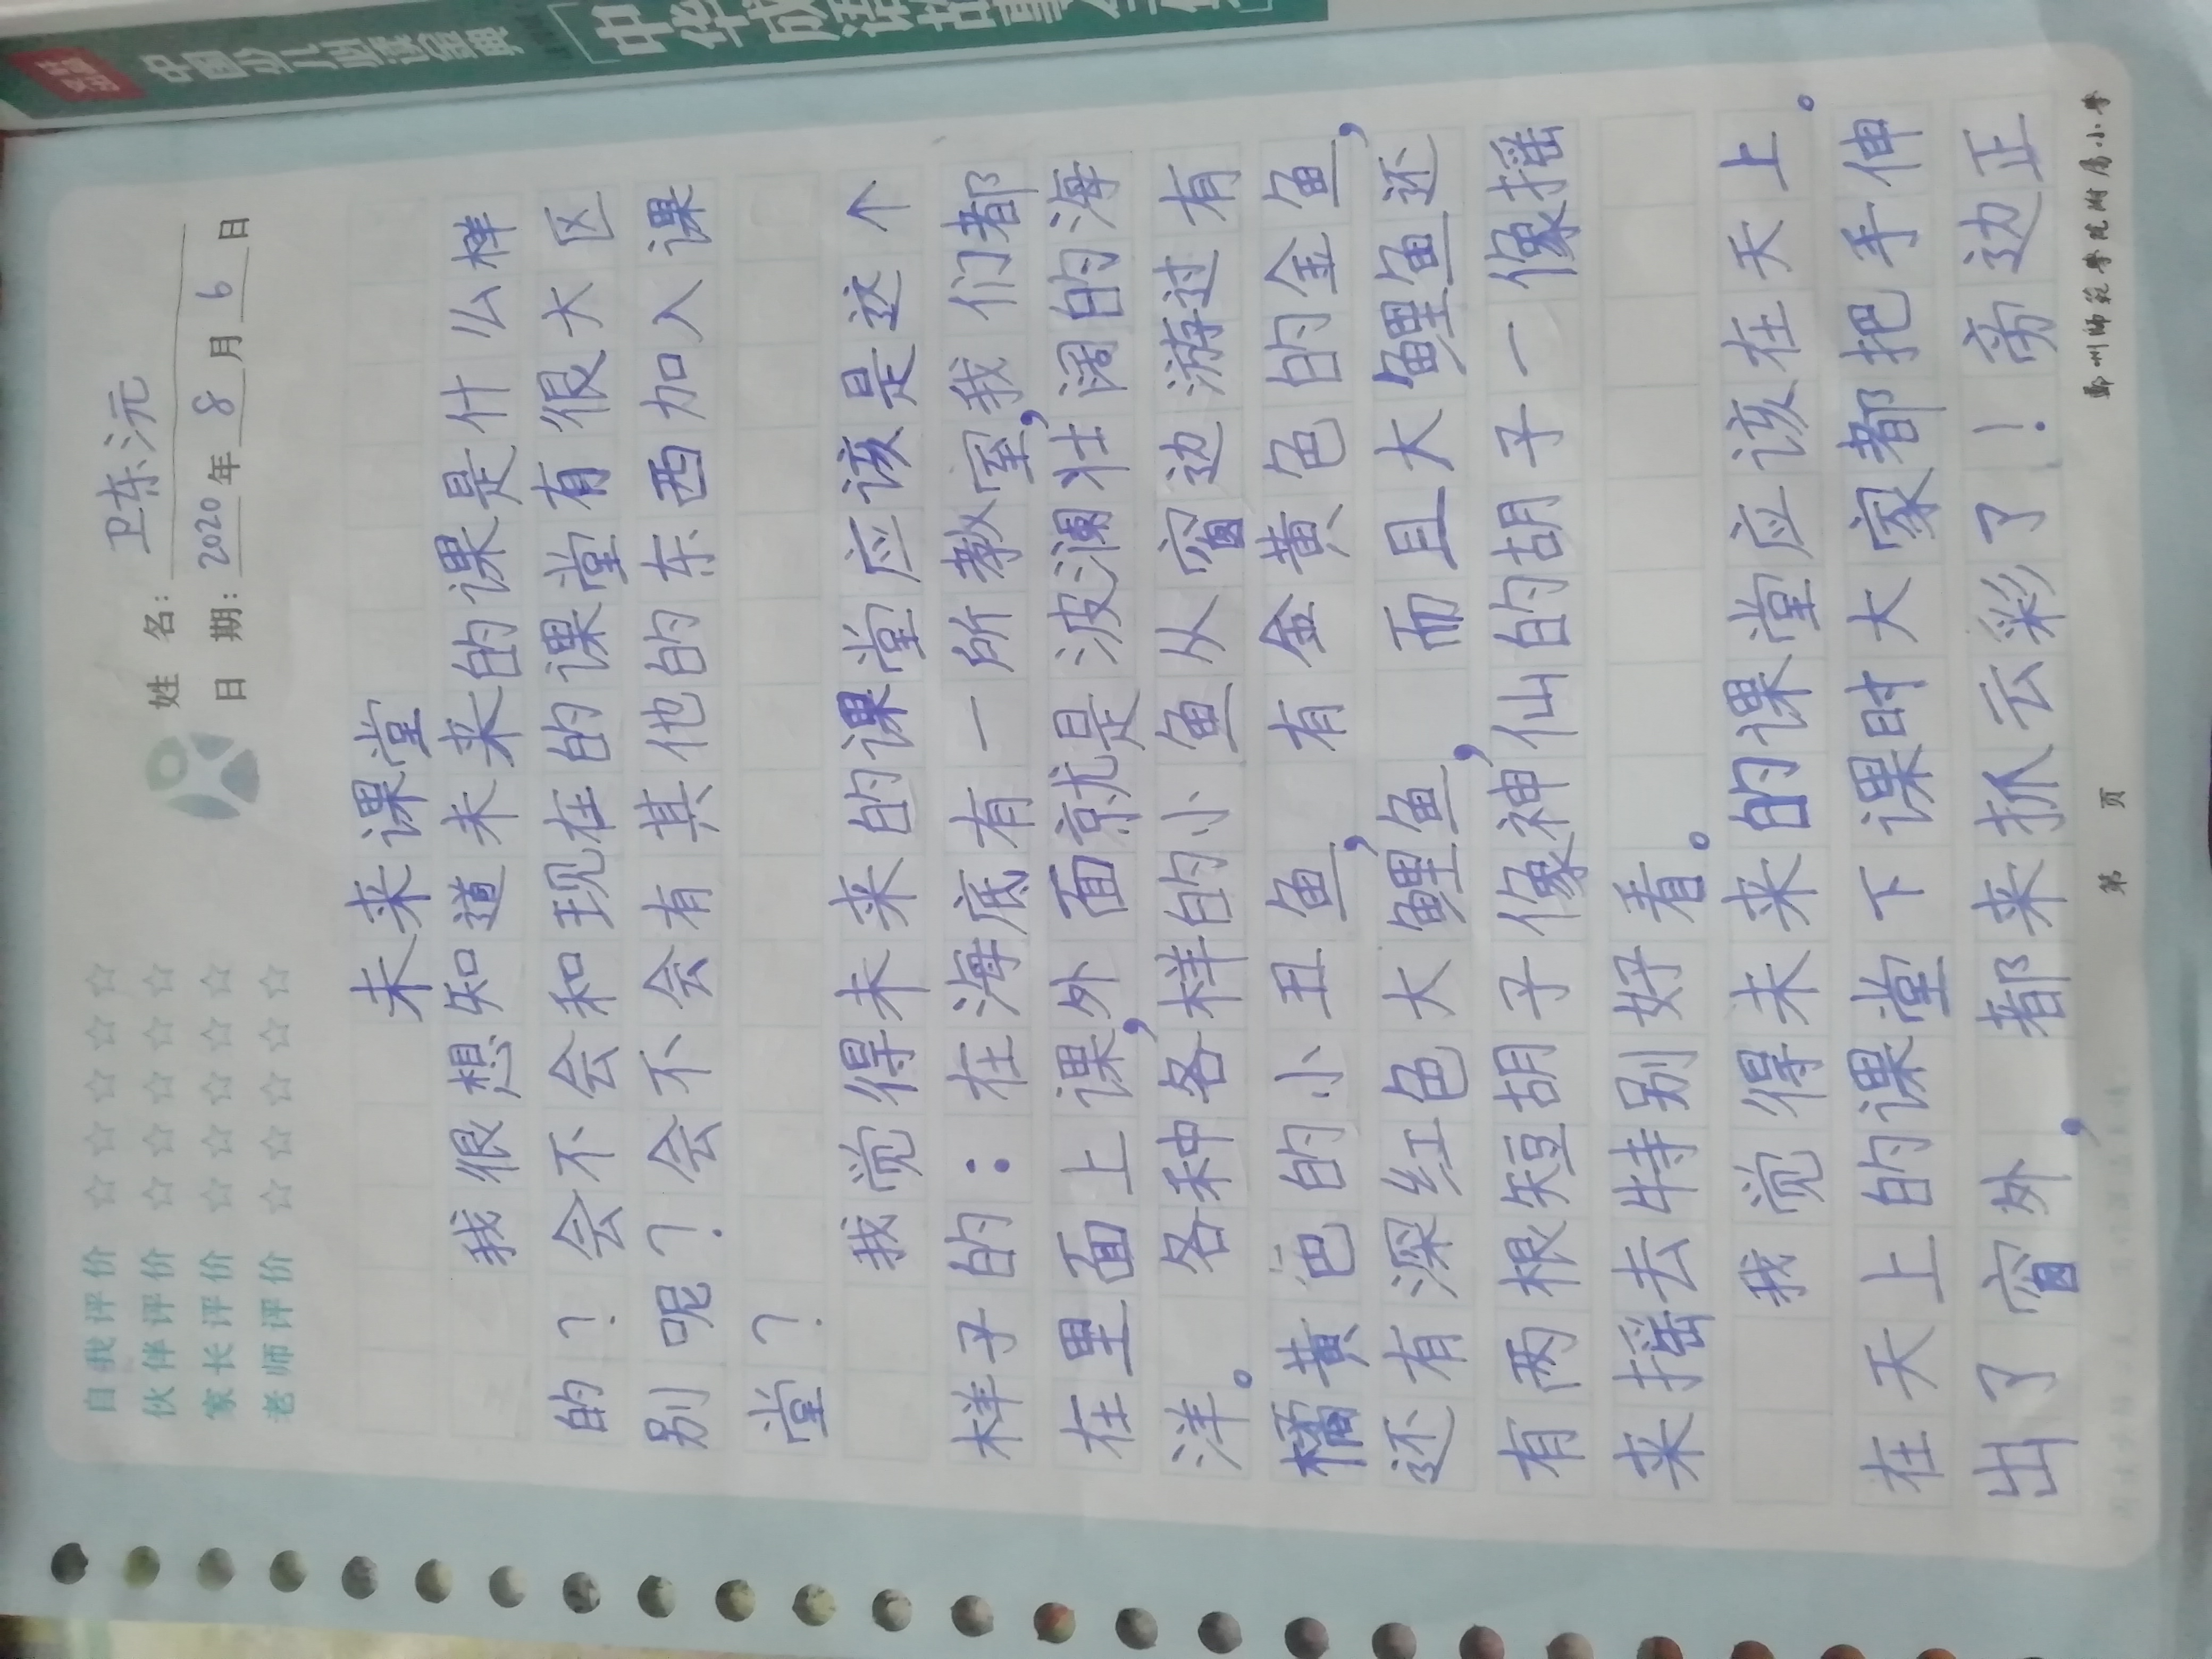 中国少儿必读金典
姓 名： 卫东沅
日 期： 2020 年 8 月 6 日
自我评价 ☆ ☆ ☆ ☆ ☆
伙伴评价 ☆ ☆ ☆ ☆ ☆
家长评价 ☆ ☆ ☆ ☆ ☆
老师评价 ☆ ☆ ☆ ☆ ☆
未来课堂
我很想知道未来的课是什么样
的？会不会和现在的课堂有很大区
别呢？会不会有其他的东西加入课
堂？
我觉得未来的课堂应该是这个
样子的：在海底有一所教室，我们都
在里面上课，外面就是波澜壮阔的海
洋。各种各样的小鱼从窗边游过有
橘黄色的小丑鱼，有金黄色的金鱼，
还有深红色大鲤鱼，而且大鲤鱼还
有两根短胡子像神仙的胡子一像摇
来摇去特别好看。
我觉得未来的课堂应该在天上。
在天上的课堂下课时大家都把手伸
出了窗外，都来抓云彩了！旁边正
第 页
郑州师范学院附属小学